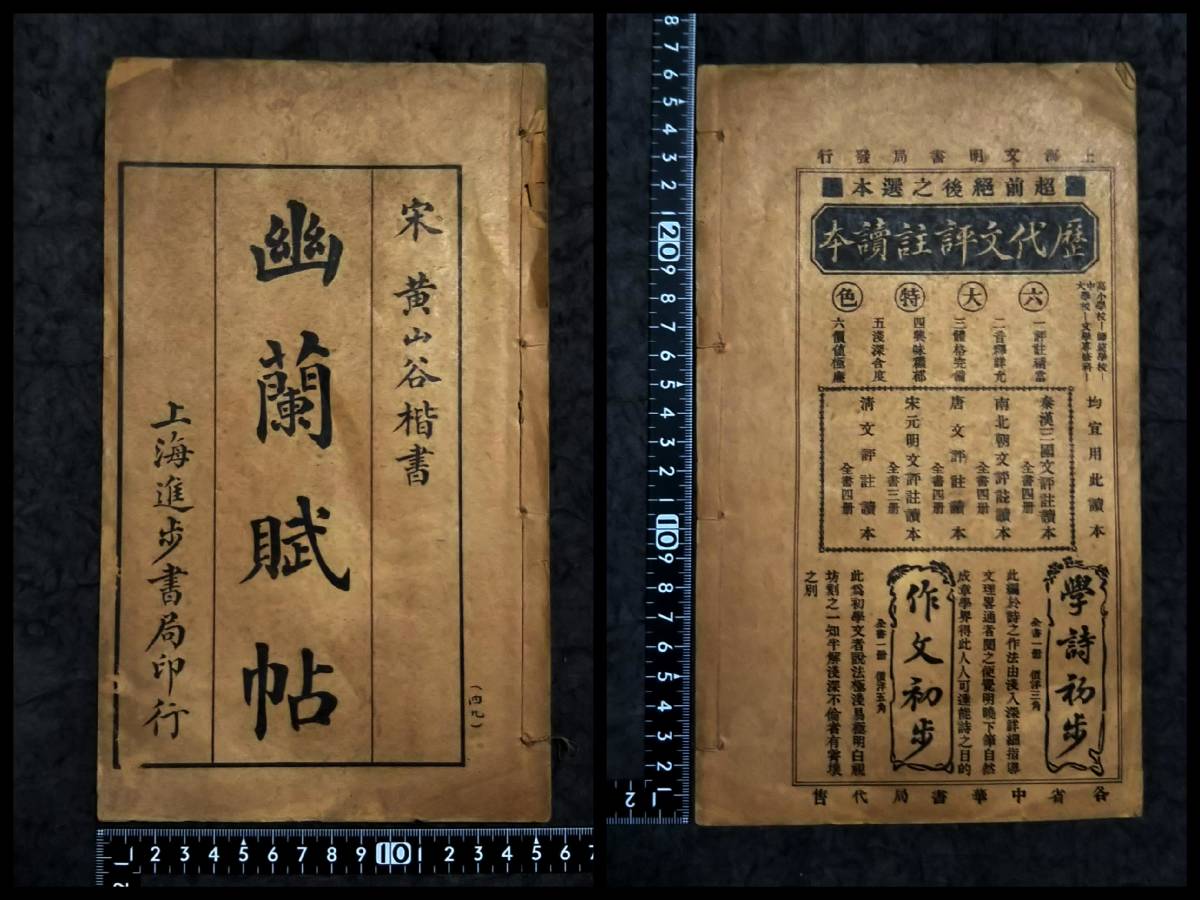 宋 黄山谷楷書
幽蘭賦帖
上海進步書局印行
(四九)
上海文明書局發行
超前絕後之選本
歷代文評註讀本
六大特色
一評註精當
二音釋詳尤
三體格完備
四興味穠郁
五淺深合度
六價值極廉
高小學校—師範學校—
中學校—文學專修科—
大
均宜用此讀本
秦漢三國文評註讀本
全書四册
南北朝文評註讀本
全書四册
唐文評註讀本
全書四册
宋元明文評註讀本
全書三册
清文評註讀本
全書四册
學詩初步
全書一册 價洋三角
此編於詩之作法由淺入深詳細指導
文理畧通者閱之便覺明曉下筆自然
成章學界得此人人可達能詩之目的
作文初步
全書一册 價洋五角
此為初學文者說法極淺易極明白視
坊刻之一知半解淺深不倫者有霄壤
之別
各省中華書局代售
8 7 6 5 4 3 2 1 20 9 8 7 6 5 4 3 2 1 10 9 8 7 6 5 4 3 2 1
2
1 2 3 4 5 6 7 8 9 10 1 2 3 4 5 6 7